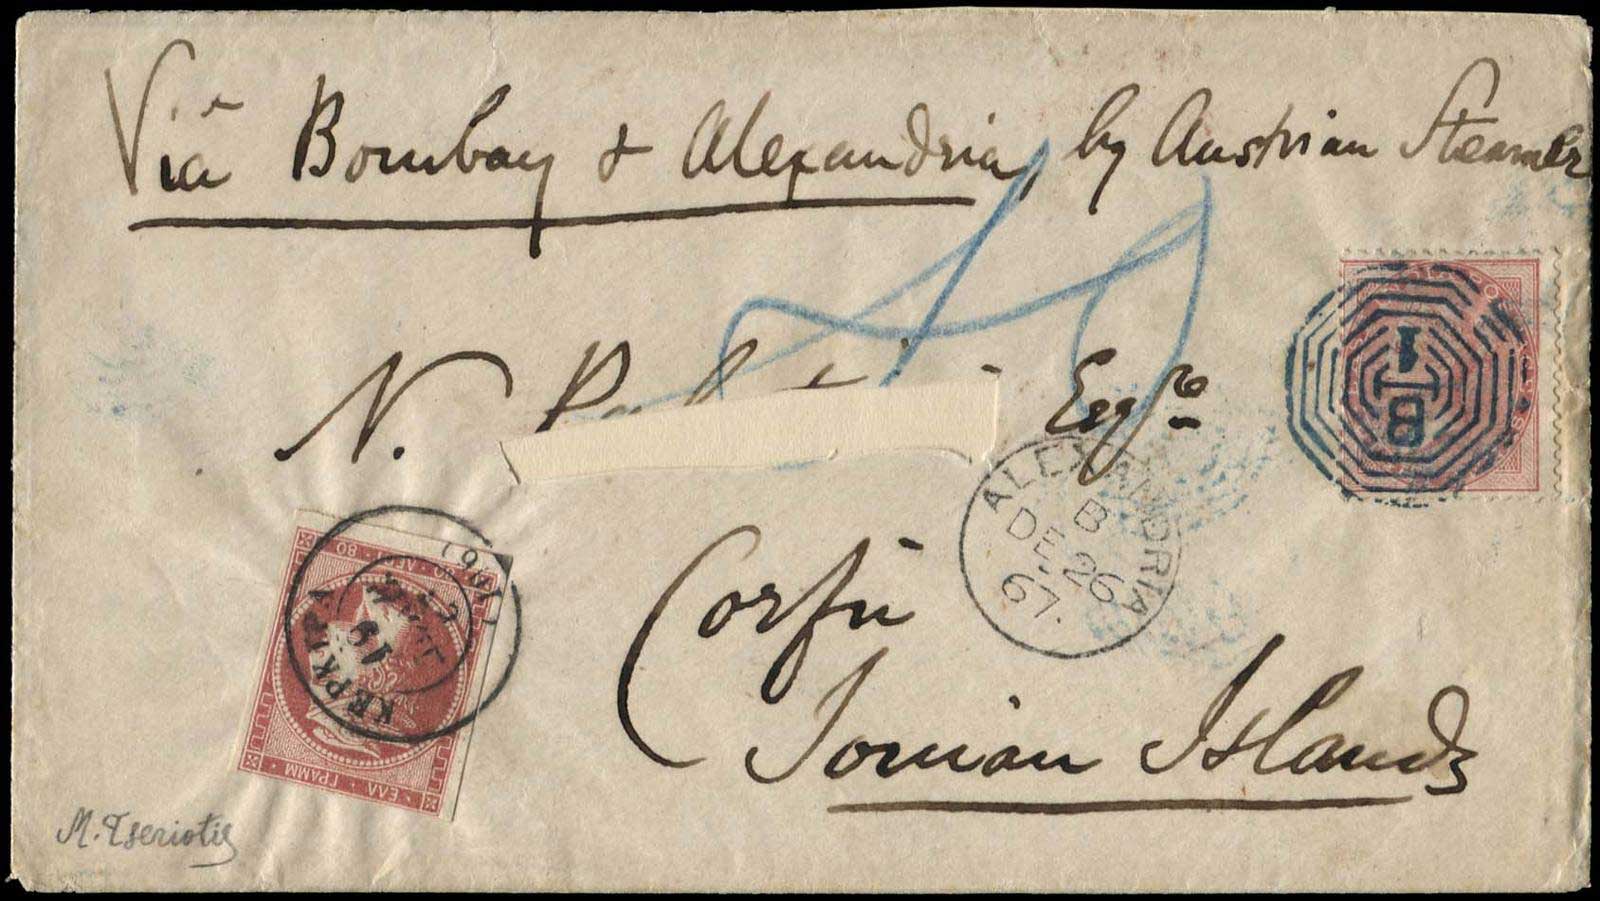 Via Bombay & Alexandria, by Austrian Steamer
N. Esqre
Corfu
Ionian Islands
ALEXANDRIA
B
DE 26
67.
1
B
ΚΕΡΚΙΡΑ
(961)
19
80 · ΛΕΠ · 80
ΕΛΛ ΓΡΑΜΜ
M. Tseriotis